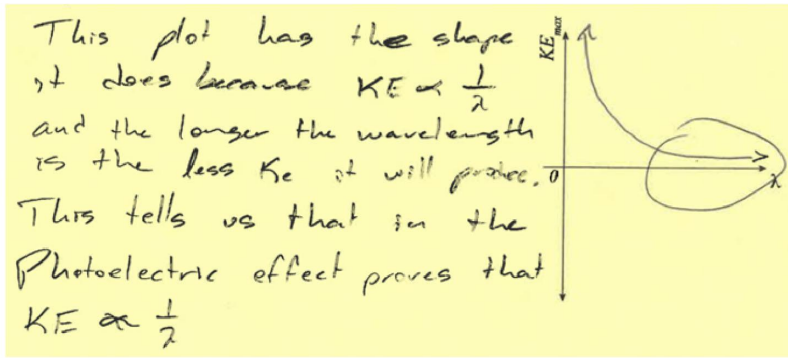 This plot has the shape
it does because KE ∝ 1/λ
and the longer the wavelength
is the less Ke it will produce.
This tells us that in the
Photoelectric effect proves that
KE ∝ 1/λ
KE max
0
λ